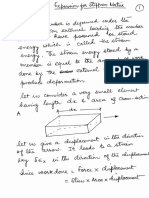 Expression for Stiffness Matrix
1
member is deformed under the
external loading, the member
have possessed for stored
energy which is called the strain
energy. The strain energy stored by a
member is equal to the amount of work
done by the external forces to
produce deformation.
let us consider a very small element
having length dx & area of cross-section
A
let us give a displacement in the direction
of the arrow. It leads to a strain
say Ex in the direction of the displacement
Since work done = Force x displacement
= Stress x Area x displacement